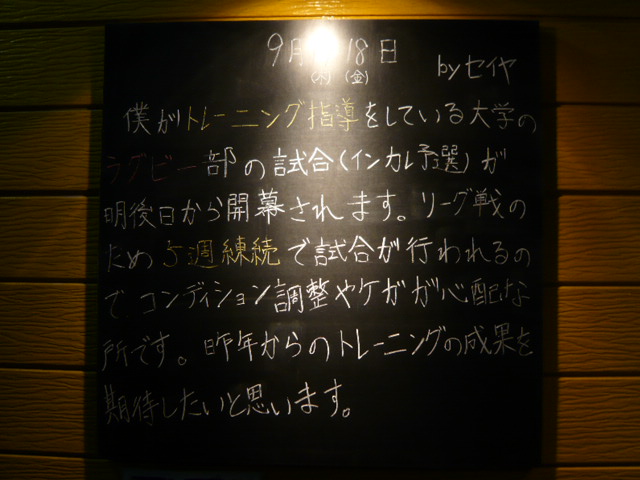 9月 18日
(木) (金) byセイヤ
僕がトレーニング指導をしている大学の
ラグビー部の試合(インカレ予選)が
明後日から開幕されます。リーグ戦の
ため5週練続で試合が行われるの
で、コンディション調整やケガが心配な
所です。昨年からのトレーニングの成果を
期待したいと思います。